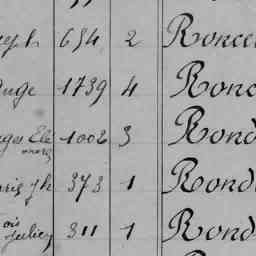 eph 654 2 Ronce
uge 1739 4 Ronc
ges Ele 1002 3 Rond
373 1 Rond
ois
Julien 311 1 Rond